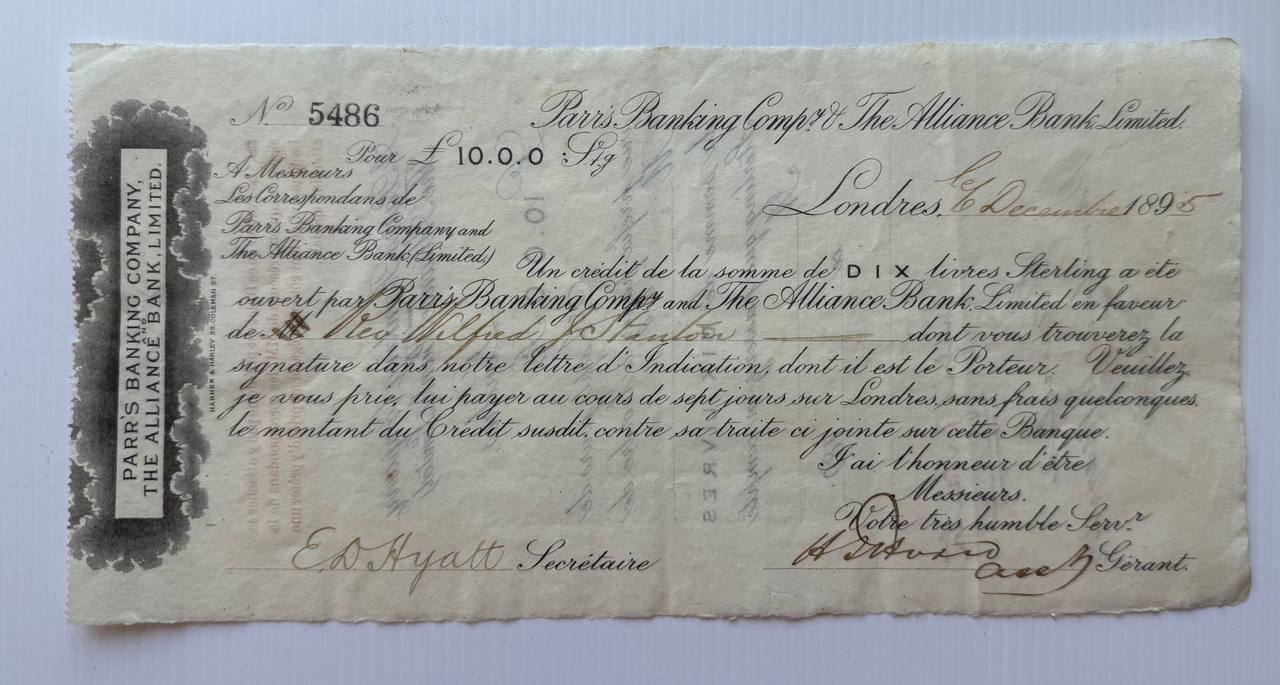 PARR'S BANKING COMPANY,
AND
THE ALLIANCE BANK, LIMITED.
HARMER & HARLEY 56, COLEMAN ST.
No 5486
Parr's Banking Compy. & The Alliance Bank, Limited.
Pour £ 10.0.0 Stg
A Messieurs
Les Correspondans de
Parr's Banking Company and
The Alliance Bank (Limited.)
Londres, le 6 Decembre 1895
Un crédit de la somme de DIX livres Sterling a été
ouvert par Parr's Banking Compy. and The Alliance Bank, Limited en faveur
de Rev Wilfred J Stanton dont vous trouverez la
signature dans notre lettre d'Indication, dont il est le Porteur. Veuillez,
je vous prie, lui payer au cours de sept jours sur Londres, sans frais quelconques,
le montant du Crédit susdit, contre sa traite ci jointe sur cette Banque.
J'ai l'honneur d'être
Messieurs.
Votre très humble Servr.
E. D Hyatt Secrétaire
Gérant.